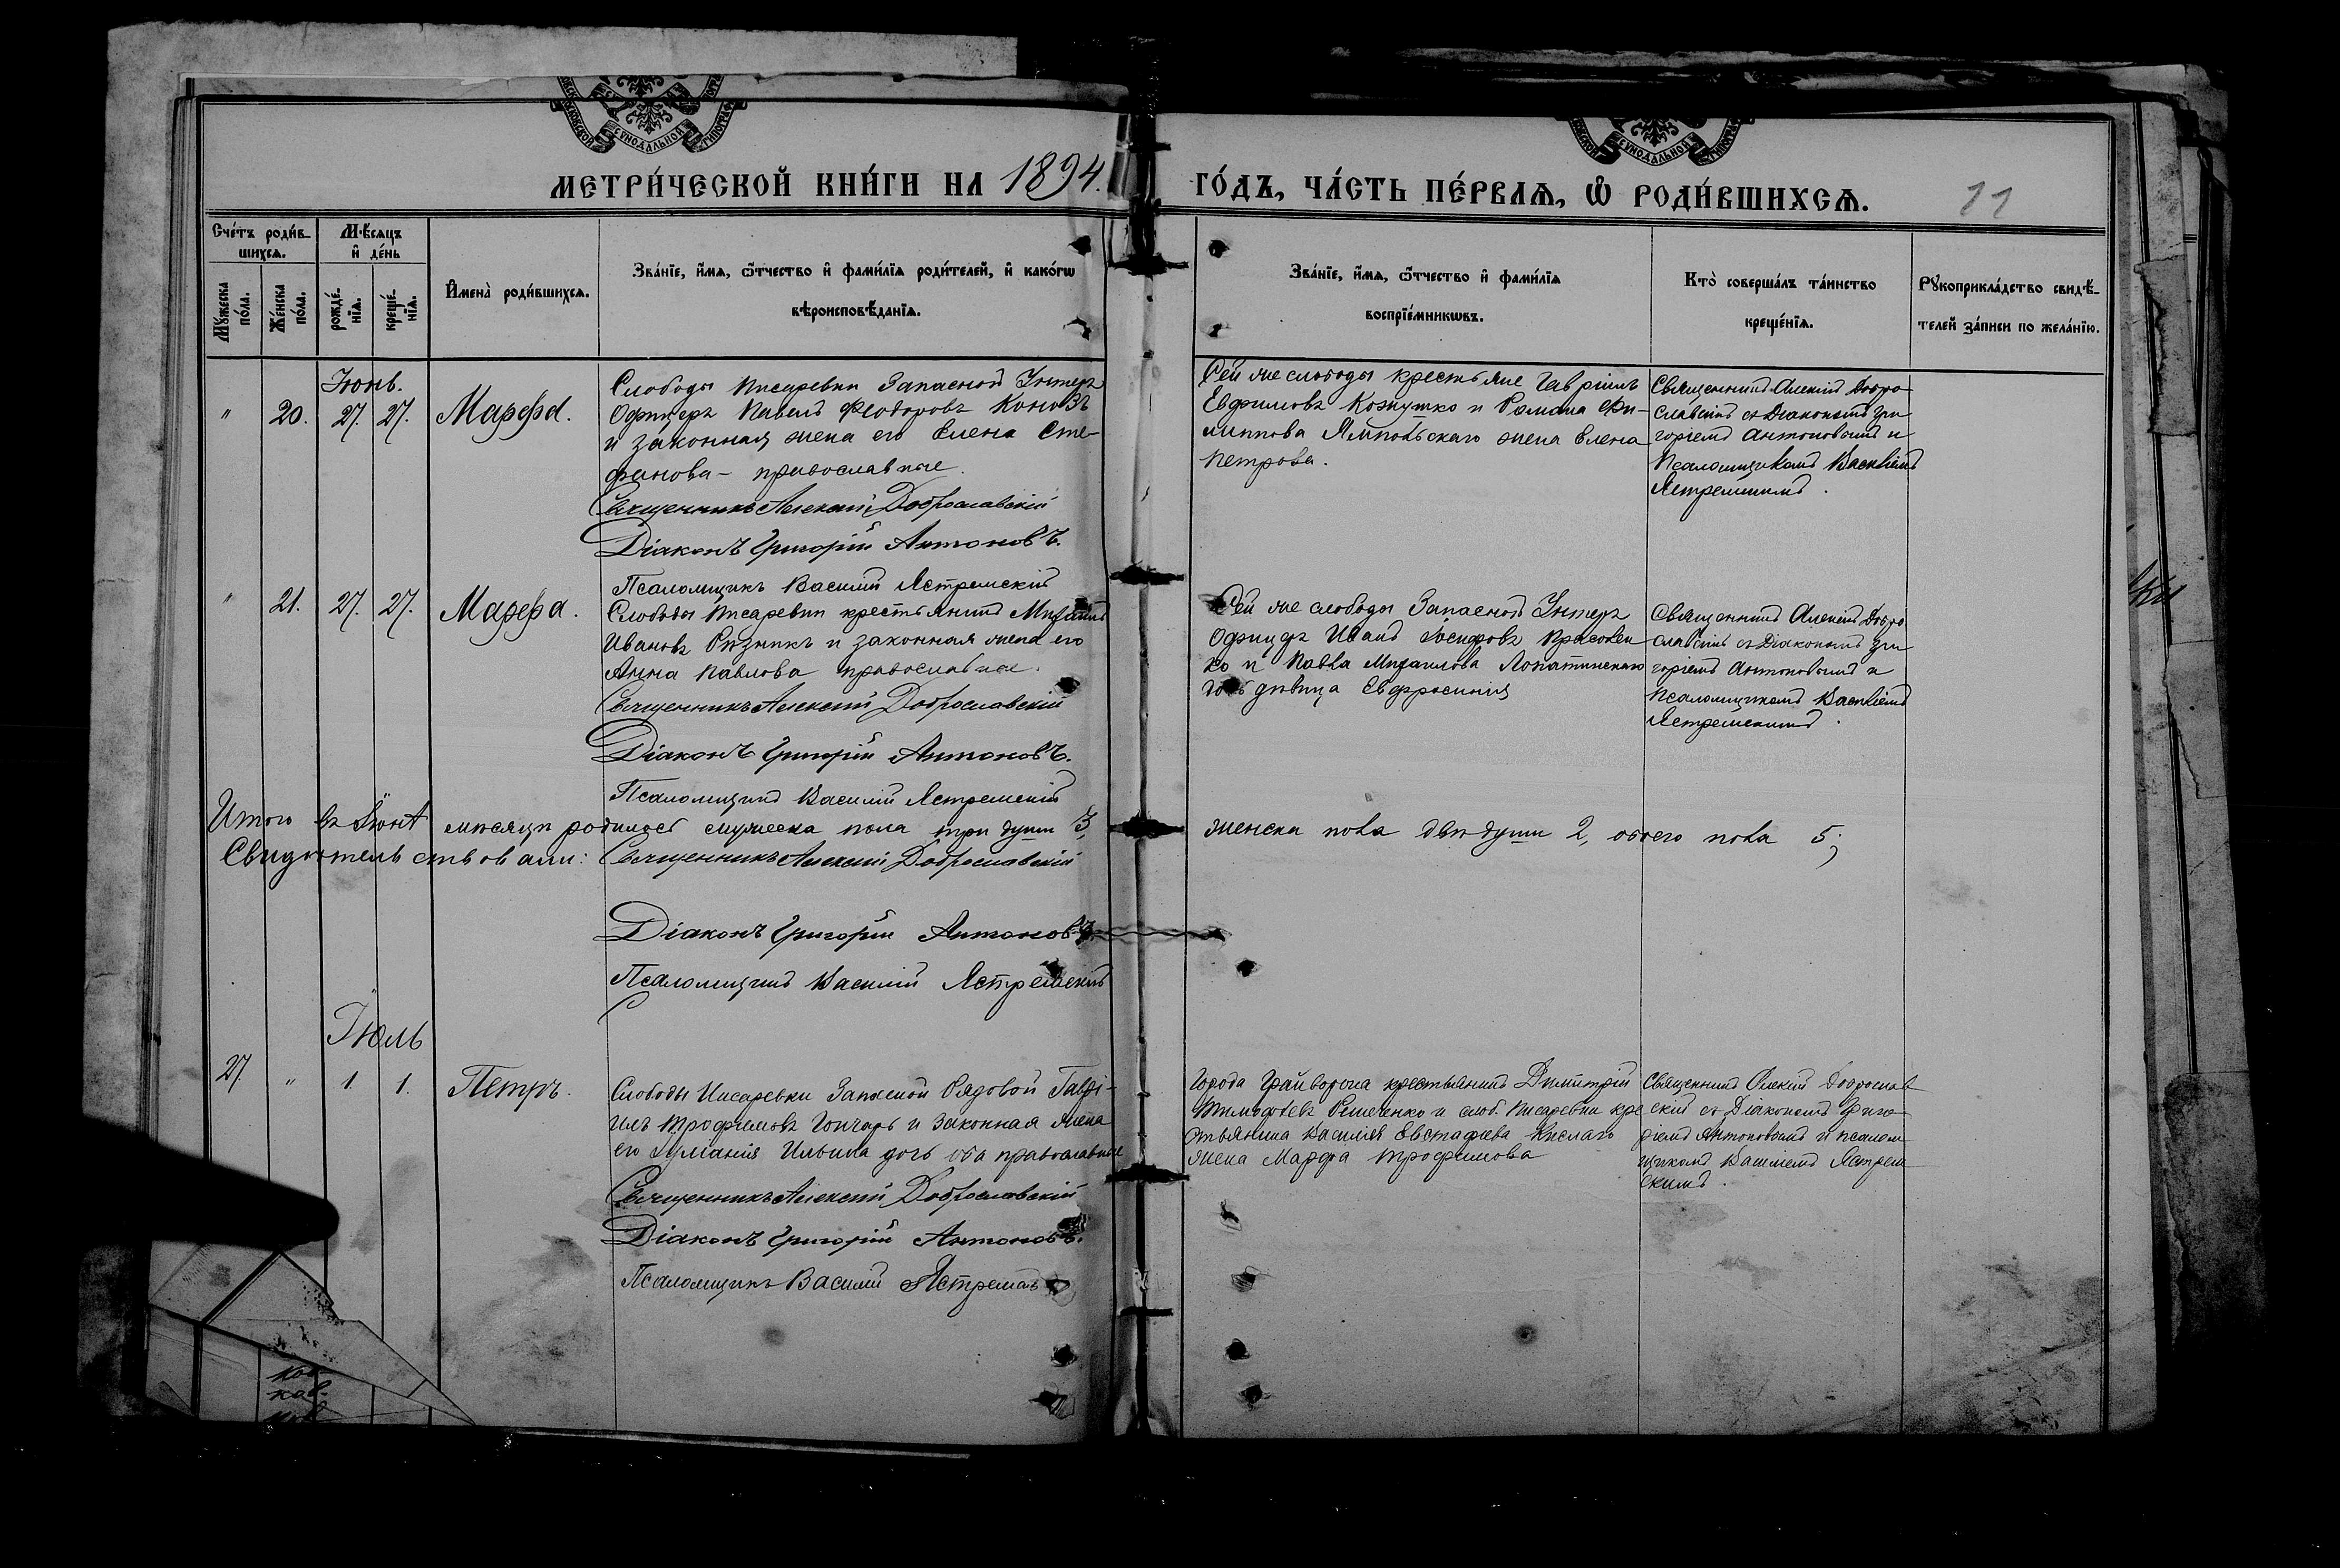 МЕТРИ́ЧЕСКОЙ КНИ́ГИ НА 1894.
ГО́ДЪ, ЧА́СТЬ ПЕ́РВАѦ, Ѡ҆ РОДИ́ВШИХСѦ.
11
Сче́тъ роди́в-
шихсѧ.
Мꙋ́жеска по́ла.
Же́нска по́ла.
Мѣ́сѧцъ
и҆ де́нь
рожде́-
нїѧ.
креще́-
нїѧ.
И҆мена̀ роди́вшихсѧ.
Зва́нїе, и҆́мѧ, ѻ҆́тчество и҆ фами́лїѧ роди́телей, и҆ како́гѡ
вѣроисповѣ́данїѧ.
Зва́нїе, и҆́мѧ, ѻ҆́тчество и҆ фами́лїѧ
воспрїе́мникѡвъ.
Кто̀ соверша́лъ та́инство
креще́нїѧ.
Рꙋкоприкла́дство свидѣ́-
телей за́писи по жела́нїю.
Іюнь.
" 20. 27. 27. Марѳа.
Слободы Писаревки Запасной Унтеръ
Офицеръ Павелъ Ѳеодоровъ
и законная жена его Елена Сте-
фанова - православные.
Священникъ Алексій Доброславскій
Діаконъ Григорій Антоновъ.
Псаломщикъ Василій Ястремскій
Сей же слободы крестьяне Гавріилъ
Евфимовъ Кожушко и Романа Фи-
липпова Ямпольскаго жена Елена
Петрова.
Священникъ Алексій Добро-
славскій съ Діакономъ Гри
горіемъ Антоновымъ и
Псаломщикомъ Василіемъ
Ястремскимъ.
" 21. 27. 27. Марѳа.
Слободы Писаревки крестьянинъ Михаилъ
Ивановъ Рѣзникъ и законная жена его
Анна Павлова православные.
Священникъ Алексій Доброславскій
Діаконъ Григорій Антоновъ.
Псаломщикъ Василій Ястремскій
Сей же слободы Запасной Унтеръ
Офицеръ Иванъ Іосифовъ
и Павла Михаилова Лопатинскаго
дочь дѣвица Евфросинія
Священникъ Алексій Добро
славскій съ Діакономъ Гри
горіемъ Антоновымъ и
Псаломщикомъ Василіемъ
Ястремскимъ.
Итого въ Іюнѣ мѣсяцѣ родилось мужеска пола три души 3,
женска пола двѣ души 2, обоего пола 5;
Свидѣтельствовали: Священникъ Алексій Доброславскій
Діаконъ Григорій Антоновъ.
Псаломщикъ Василій Ястремскій
Іюль
27. " 1. 1. Петръ.
Слободы Писаревки Запасной Рядовой Гаврі-
илъ Трофимовъ Гончаръ и законная жена
его Ильина дочь оба православные
Священникъ Алексій Доброславскій
Діаконъ Григорій Антоновъ.
Псаломщикъ Василій Ястремскій
Города Грайворона крестьянинъ Димитрій
Тимоѳѣевъ и слоб. Писаревки кре
стьянина Василія Евстафіева Кислаго
жена Марфа Трофимова
Священникъ Алексій Доброслав
скій съ Діакономъ Григо
ріемъ Антоновымъ и псалом
щикомъ Василіемъ Ястрем
скимъ.